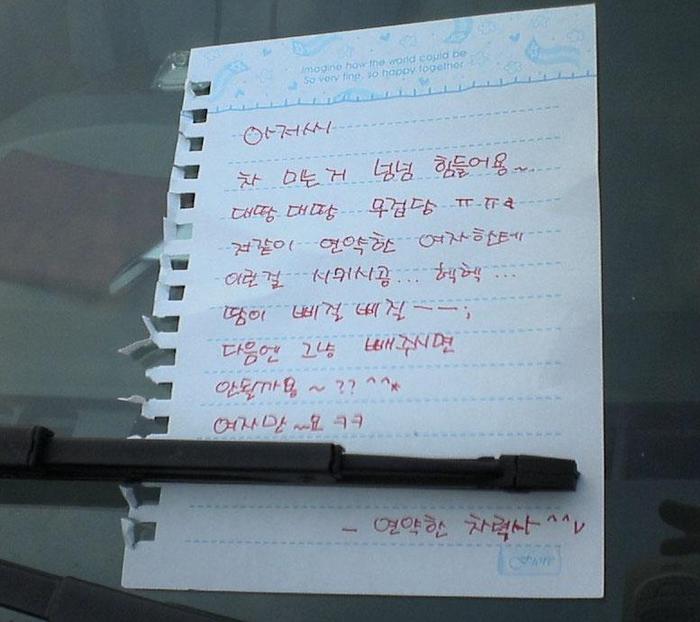 Imagine how the world could be
So very fine, so happy together
아저씨
차 미는거 넘넘 힘들어용~
대땅 대땅 무겁당 ㅠ.ㅠ
저같이 연약한 여자한테
이런걸 시키시공... 헥헥...
땀이 삐질 삐질 ㅡㅡ;
다음엔 그냥 빼주시면
안될까용 ~ ?? ^^*
여자만 ~요 ㅋㅋ
- 연약한 차력사 ^^v